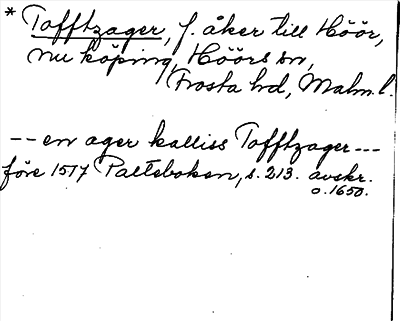 * Tofftzager, f. åker till Höör,
nu köping, Höörs sn,
Frosta hd, Malm. l.
-- en ager kalliss Tofftzager ---
före 1517 Palteboken, s. 213. avskr.
o. 1650.